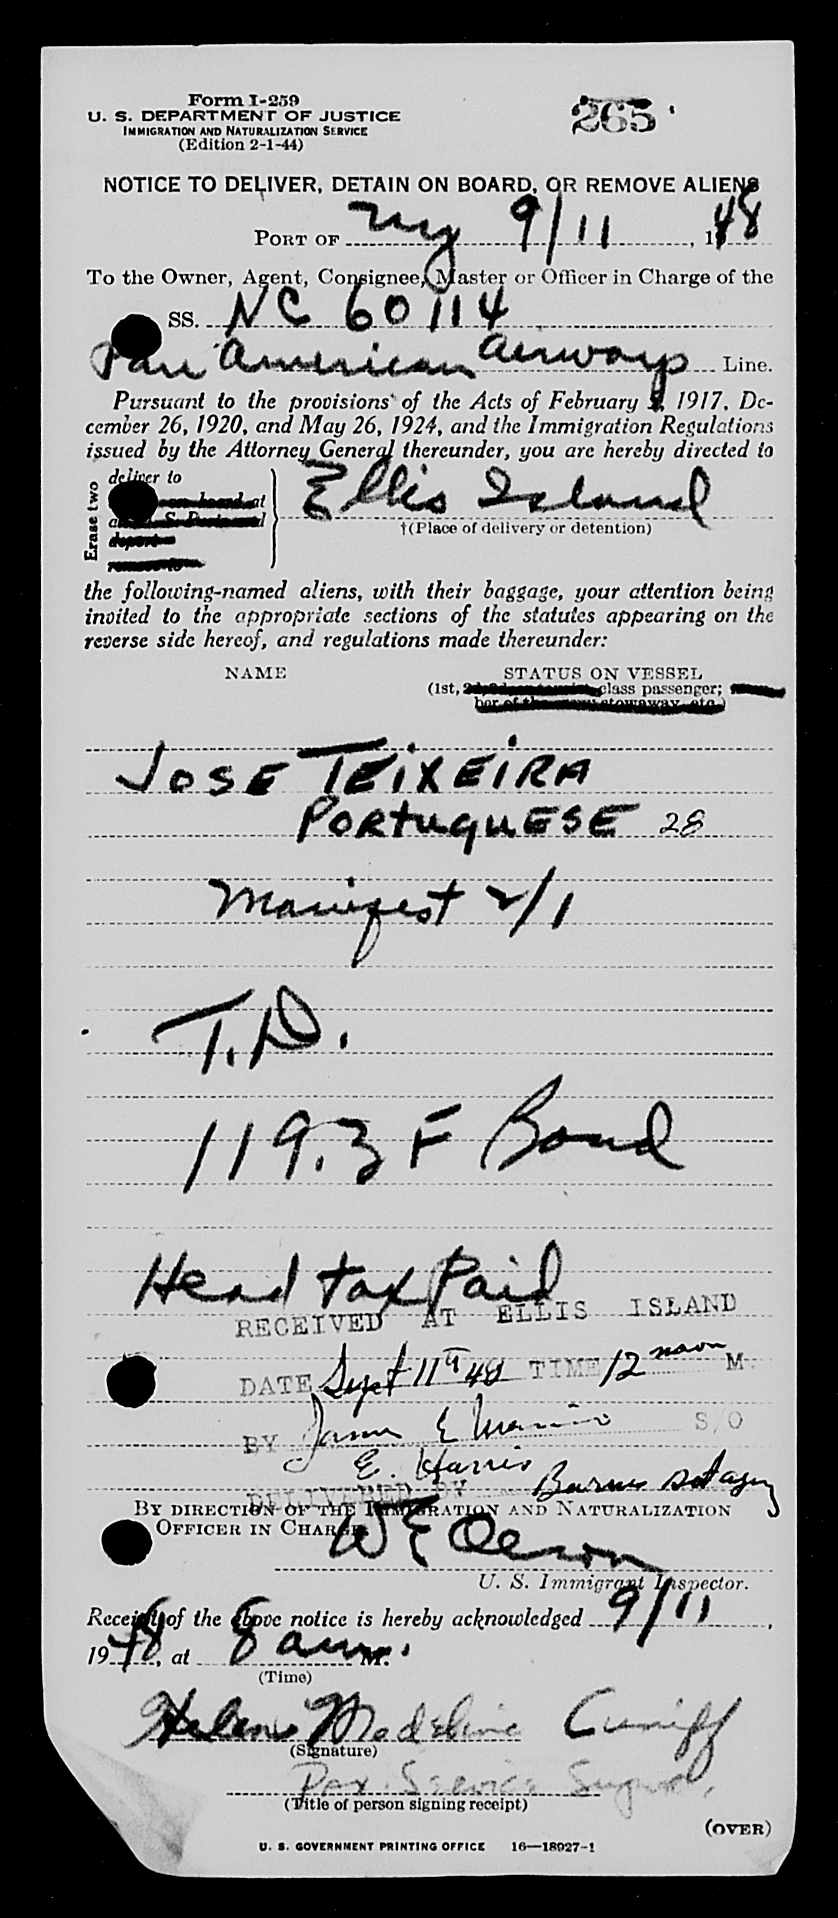 Form I-259
U. S. DEPARTMENT OF JUSTICE
IMMIGRATION AND NATURALIZATION SERVICE
(Edition 2-1-44)
265
NOTICE TO DELIVER, DETAIN ON BOARD, OR REMOVE ALIENS
PORT OF NY 9/11, 1948
To the Owner, Agent, Consignee, Master or Officer in Charge of the
SS. NC 60114
Pan American Airways Line.
Pursuant to the provisions of the Acts of February 5, 1917, De-
cember 26, 1920, and May 26, 1924, and the Immigration Regulations
issued by the Attorney General thereunder, you are hereby directed to
Erase two
deliver to
Ellis Island
†(Place of delivery or detention)
the following-named aliens, with their baggage, your attention being
invited to the appropriate sections of the statutes appearing on the
reverse side hereof, and regulations made thereunder:
NAME STATUS ON VESSEL
(1st, class passenger;
JOSE TEIXEIRA
PORTUGUESE 28
Manifest 2/1
T.D.
119.3 F Bond
Head tax Paid
RECEIVED AT ELLIS ISLAND
DATE Sept 11th 48 TIME 12 noon M.
BY James E S/O
E. Harris
DELIVERED BY Burns
BY DIRECTION OF THE IMMIGRATION AND NATURALIZATION
OFFICER IN CHARGE
W E Olson
U. S. Immigrant Inspector.
Receipt of the above notice is hereby acknowledged 9/11,
1948, at 8 am M.
(Time)
Helen Madeline Cuniff
(Signature)
Pax. Service
(Title of person signing receipt)
(OVER)
U. S. GOVERNMENT PRINTING OFFICE 16—18927-1